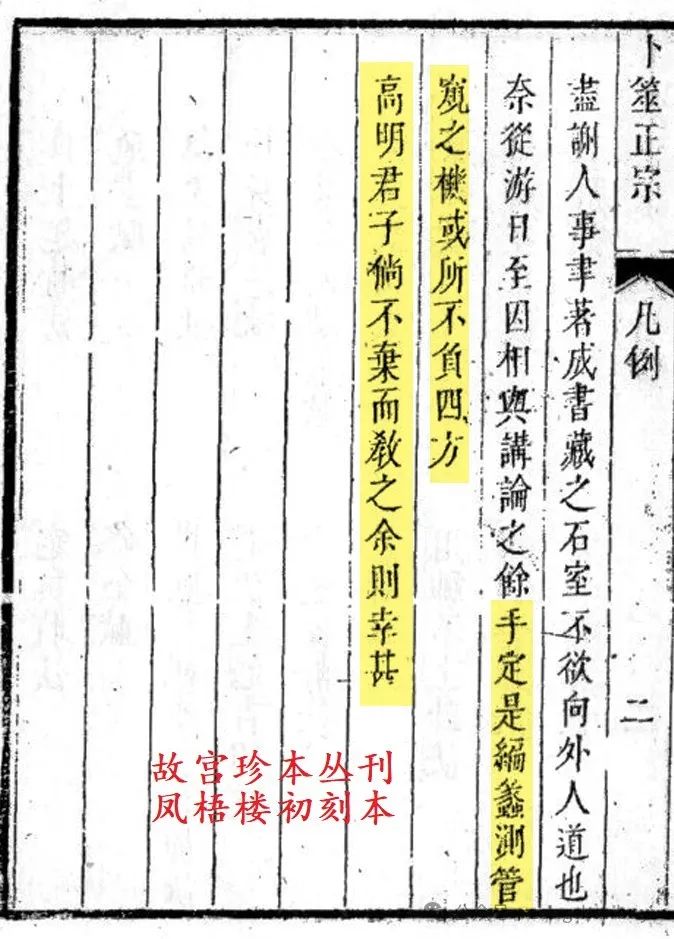 卜筮正宗
凡例
二
盡謝人事聿著成書藏之石室不欲向外人道也
奈從游日至因相與講論之餘手定是編蠡測管
窺之機或所不負四方
高明君子倘不棄而敎之余則幸甚
故宫珍本丛刊
凤梧楼初刻本